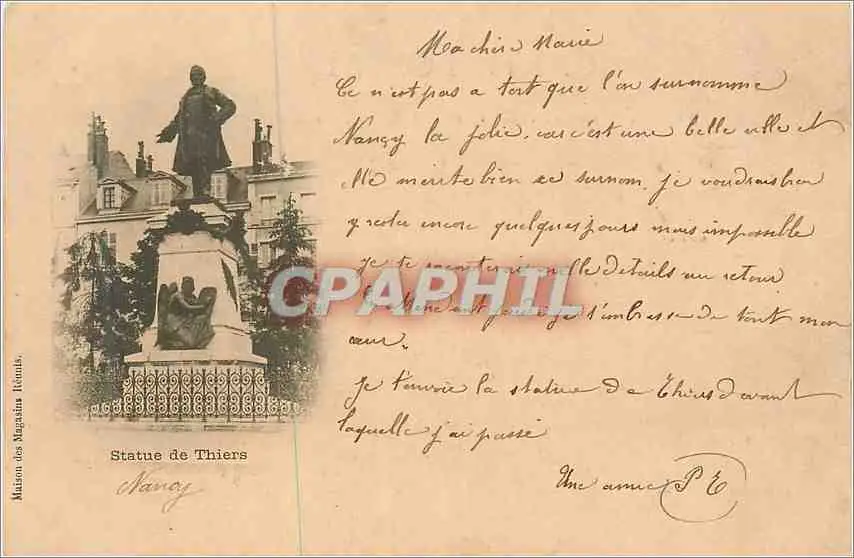 Ma chère Marie
Ce n'est pas a tort que l'on surnomme
Nançy la jolie, car c'est une belle ville et
elle mérite bien ce surnom, je voudrais bien
y rester encore quelques jours mais impossible
je te raconterai mille détails au retour
CPAPHIL
En attendant je t'embrasse de tout mon
cœur.
je t'envoie la statue de Thiers devant
laquelle j'ai passé
Une amie P E
Statue de Thiers
Nancy
Maison des Magasins Réunis.